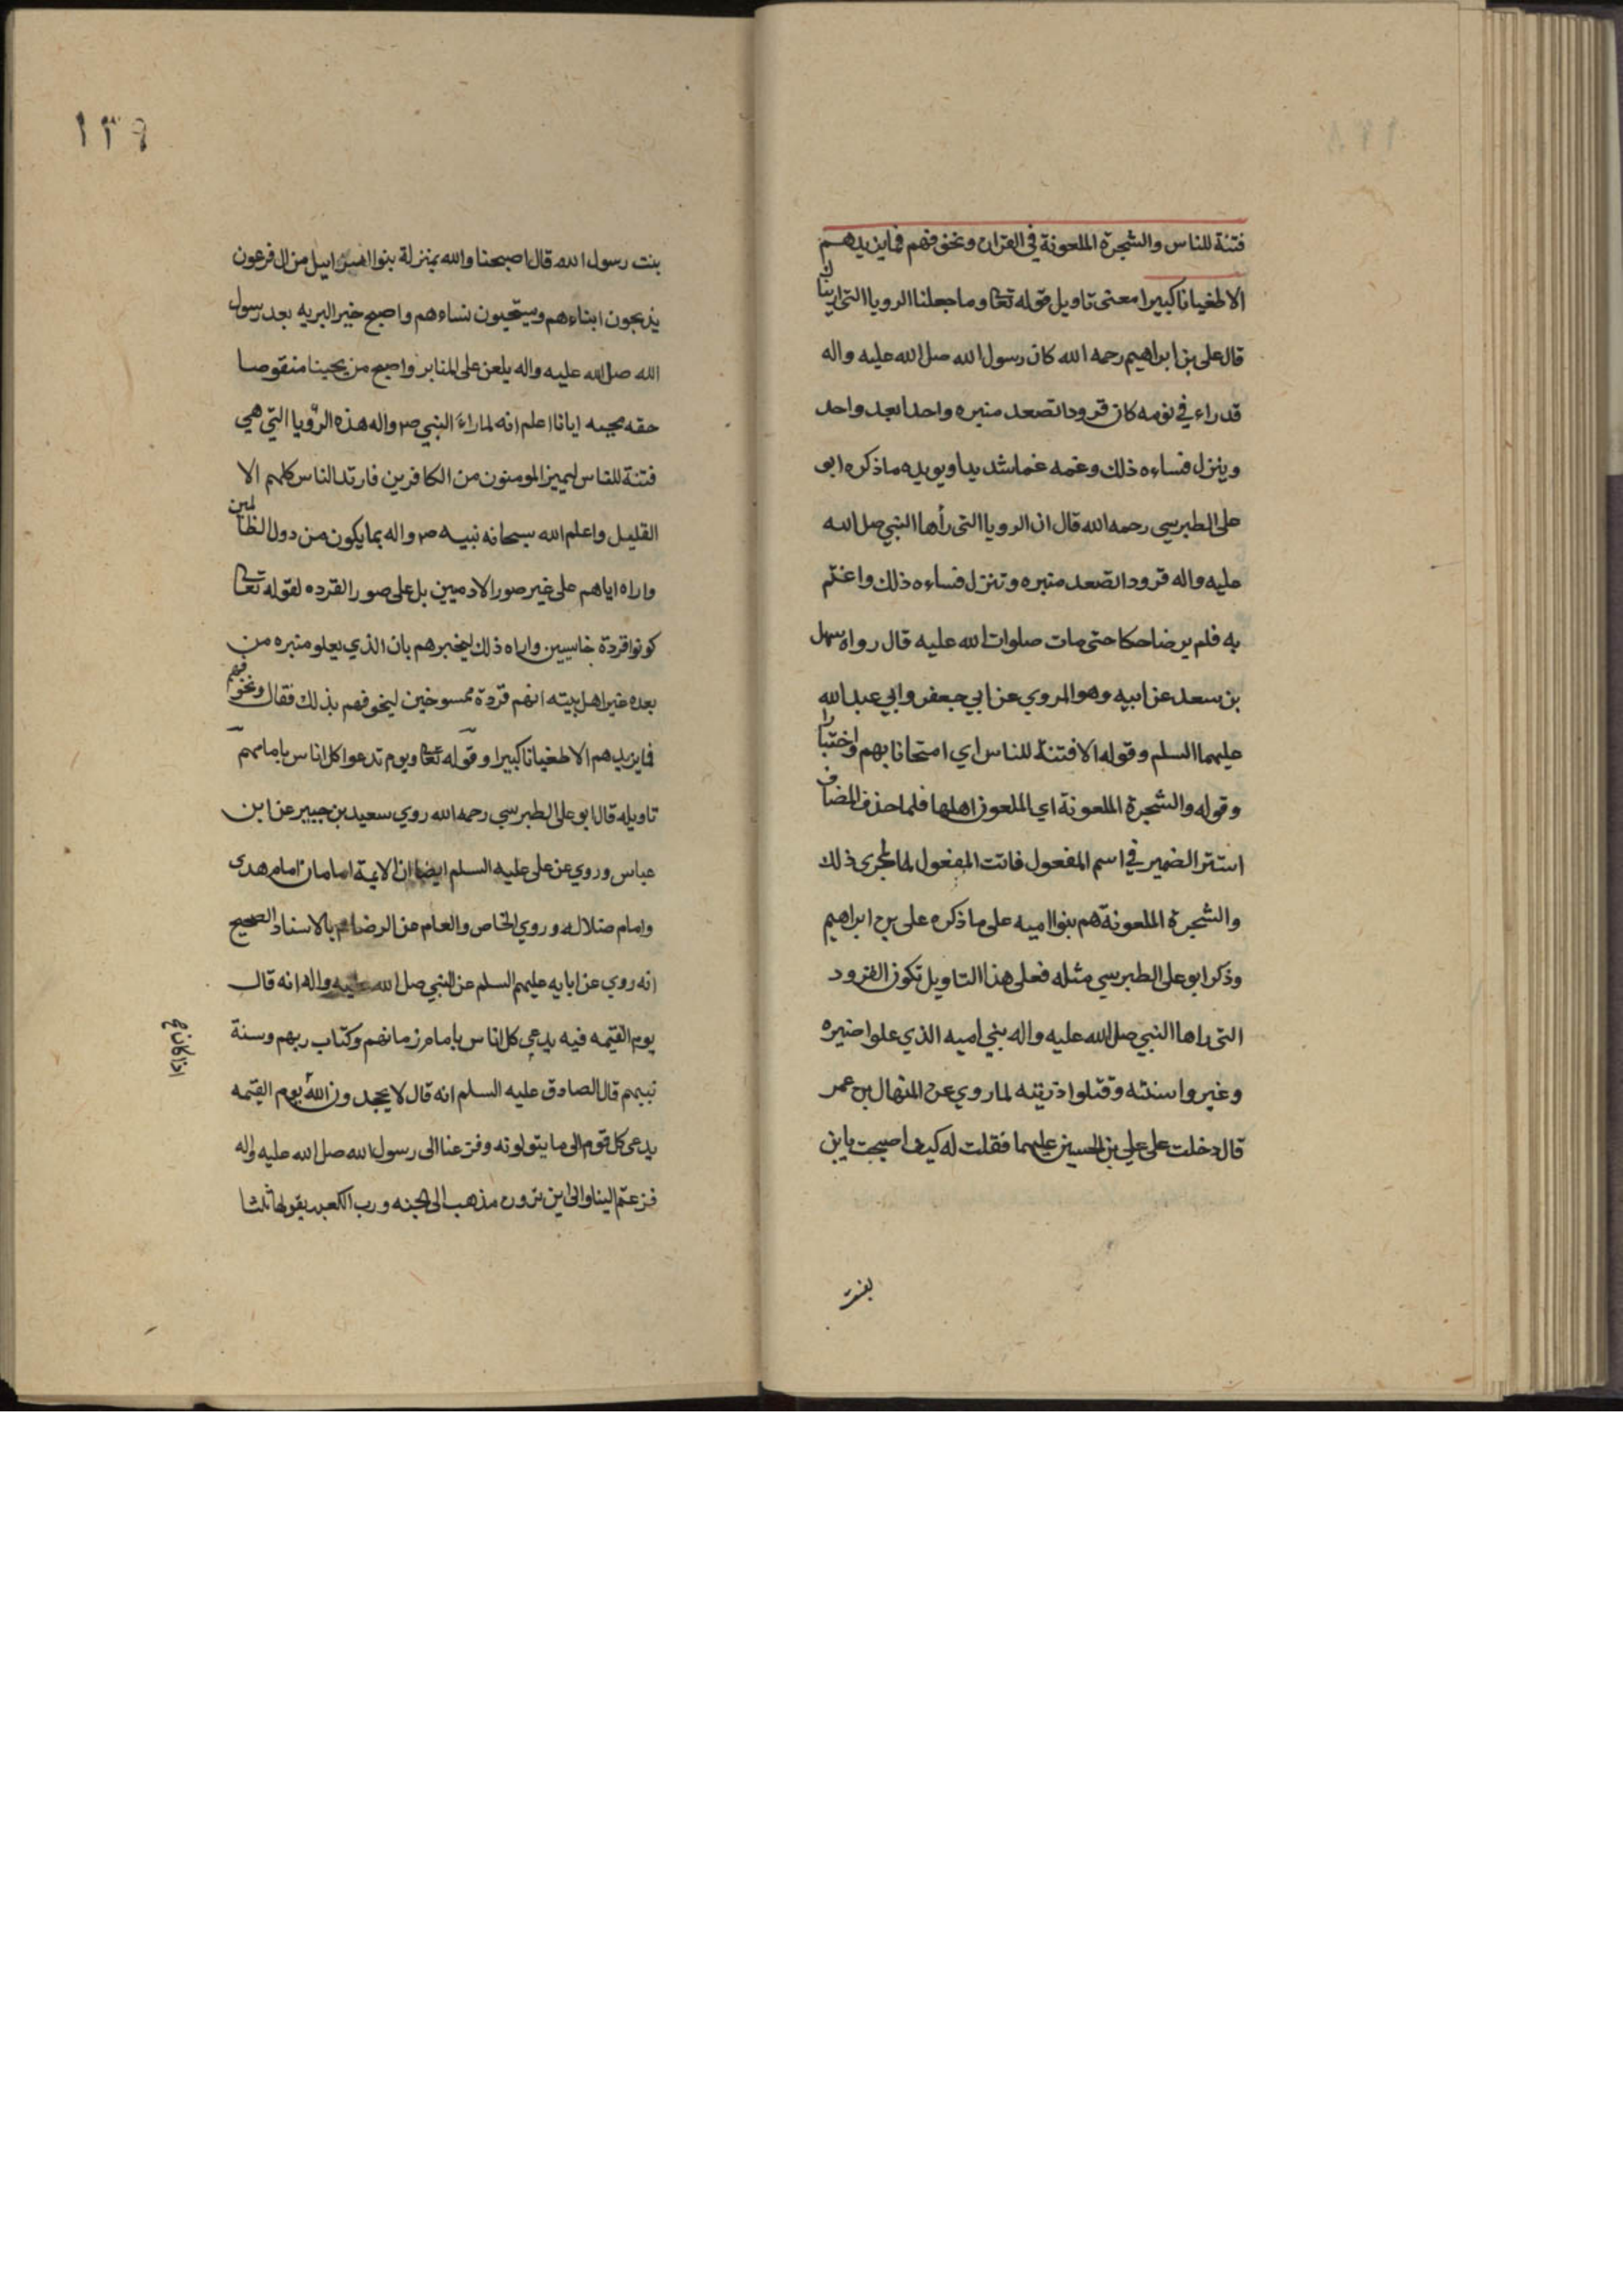 فتنة للناس والشجرة الملعونة في القران ونخوفهم فما يزيدهم
الا طغيانا كبيرا معنى تاويل قوله تعا وما جعلنا الرويا التى اريناك
قال على بن ابراهيم رحمه الله كان رسول الله صلى الله عليه واله
قد راء في نومه كان قرودا تصعد منبره واحدا بعد واحد
وينزل فساءه ذلك وغمه غما شديدا ويويده ما ذكره ابو
على الطبرسي رحمه الله قال ان الرويا التى رأها النبي صلى الله
عليه واله قرودا تصعد منبره وتنزل فساءه ذلك واغتم
به فلم ير ضاحكا حتى مات صلوات الله عليه قال رواه سهل
بن سعد عن ابيه وهو المروي عن ابي جعفر وابي عبد الله
عليهما السلم وقوله الا فتنة للناس اي امتحانا بهم واختبارا
وقوله والشجرة الملعونة اي الملعون اهلها فلما حذف المضاف
استتر الضمير في اسم المفعول فانث المفعول لما جرى ذلك
والشجرة الملعونة هم بنوا اميه على ما ذكره على بن ابراهيم
وذكر ابو على الطبرسي مثله فعلى هذا التاويل تكون القرود
التى راها النبي صلى الله عليه واله بني اميه الذي علوا منبره
وغيروا سنته وقتلوا ذريته لما روي عن المنهال بن عمر
قال دخلت على علي بن الحسين عليهما فقلت له كيف اصبحت يابن
بنت
١٣٩
بنت رسول الله قال اصبحنا والله بمنزلة بنوا اسرايل من ال فرعون
يذبحون ابناءهم ويستحيون نساءهم واصبح خير البريه بعد رسول
الله صلى الله عليه واله يلعن على المنابر واصبح من يحبنا منقوصا
حقه بحبه ايانا اعلم انه لما راء النبي ص واله هذه الرؤيا التي هي
فتنة للناس ليميز المومنون من الكافرين فارتد الناس كلهم الا
القليل واعلم الله سبحانه نبيه ص واله بما يكون من دول الظالمين
واراه اياهم على غير صور الادميين بل على صور القرده لقوله تعا
كونوا قردة خاسيين واراه ذلك ليخبرهم بان الذي يعلو منبره من
بعده غير اهل بيته انهم قردة ممسوخين ليخوفهم بذلك فقال ونخوفهم
فما يزيدهم الا طغيانا كبيرا وقوله تعا ويوم ندعوا كل اناس بامامهم
تاويله قال ابو على الطبرسي رحمه الله روي سعيد بن جبير عن ابن
عباس وروي عن على عليه السلم ايضا ان الايمة امامان امام هدى
وامام ضلاله وروي الخاص والعام عن الرضا ع بالاسناد الصحيح
انه روي عن ابايه عليهم السلم عن النبي صلى الله عليه واله انه قال
يوم القيمه فيه يدعى كل اناس بامام زمانهم وكتاب ربهم وسنة
نبيهم قال الصادق عليه السلم انه قال لا يحمدون الله يوم القيمه
يدعى كل قوم الى ما يتولونه وفزعنا الى رسول الله صلى الله عليه واله
فزعتم الينا والى اين ترون مذهب الى الجنه ورب الكعبه يقولها ثلثا
اذا كان خ